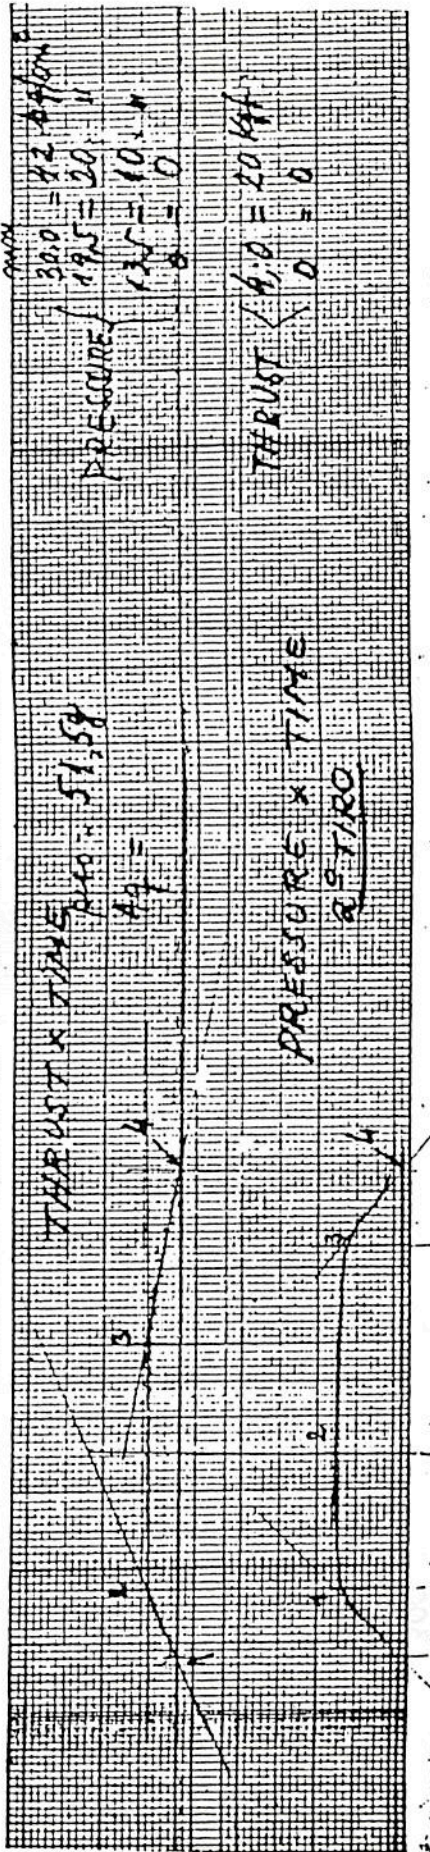 THRUST x TIME
PESO = 51,5g
Aq =
1
2
3
4
PRESSURE x TIME
2º TIRO
1
2
3
4
mm
PRESSURE
30,0 = 42
19,5 = 20 "
13,5 = 10 "
0 = 0
THRUST
4,0 = 20 Kgf
0 = 0